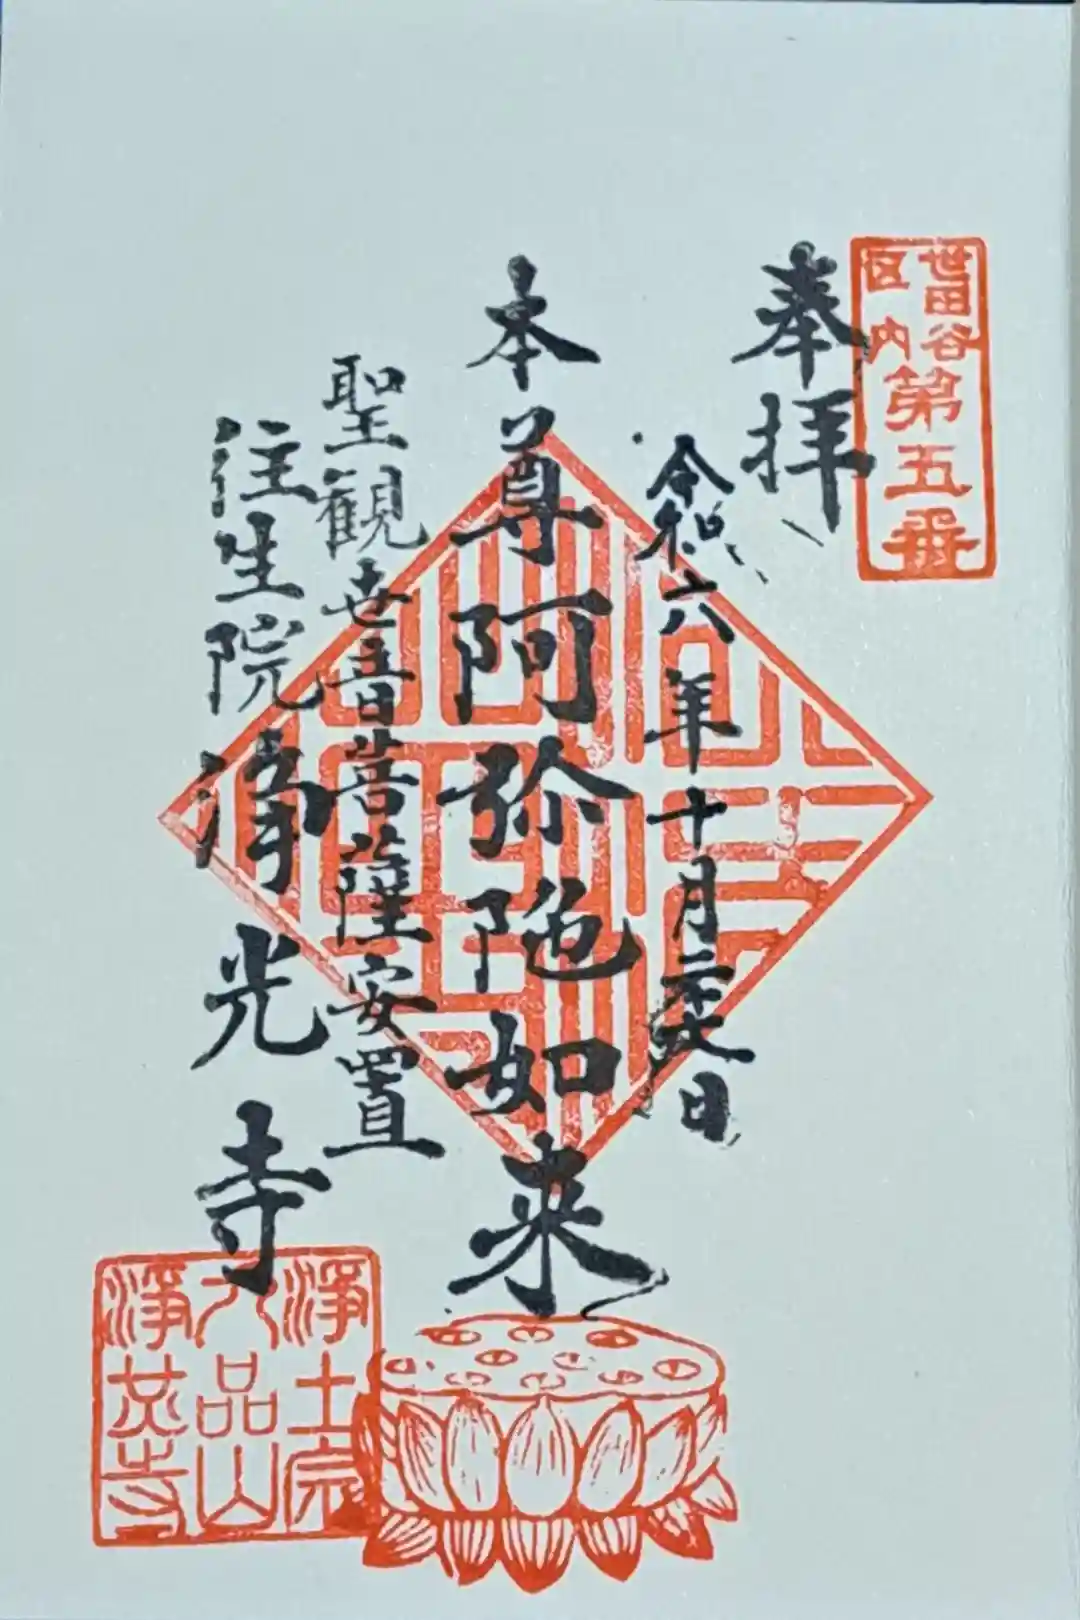 世田谷
区内
第五番
奉拝
令和六年十月 日
本尊阿弥陀如来
聖観世音菩薩安置
往生院浄光寺
淨土宗
九品山
淨光寺